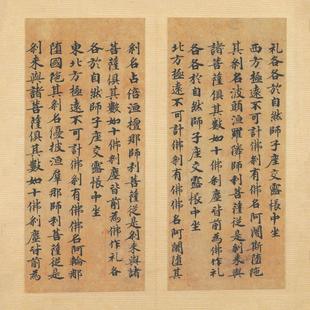 礼各各於自然師子座交露帳中坐
西方極遠不可計佛剎有佛佛名阿闍斯陁
其剎名波頭漁羅隣師利菩薩從是剎来與
諸菩薩俱其數如十佛剎塵皆前為佛作礼
各各於自然師子座交露帳中坐
北方極遠不可計佛剎有佛佛名阿闍墮其
剎名占倍漁檀那師利菩薩從是剎来與諸
菩薩俱其數如十佛剎塵皆前為佛作礼各
各於自然師子座交露帳中坐
東北方極遠不可計佛剎有佛佛名阿輪那
墮國陁其剎名優彼漁羣那師利菩薩從是
剎来與諸菩薩俱其數如十佛剎塵皆前為